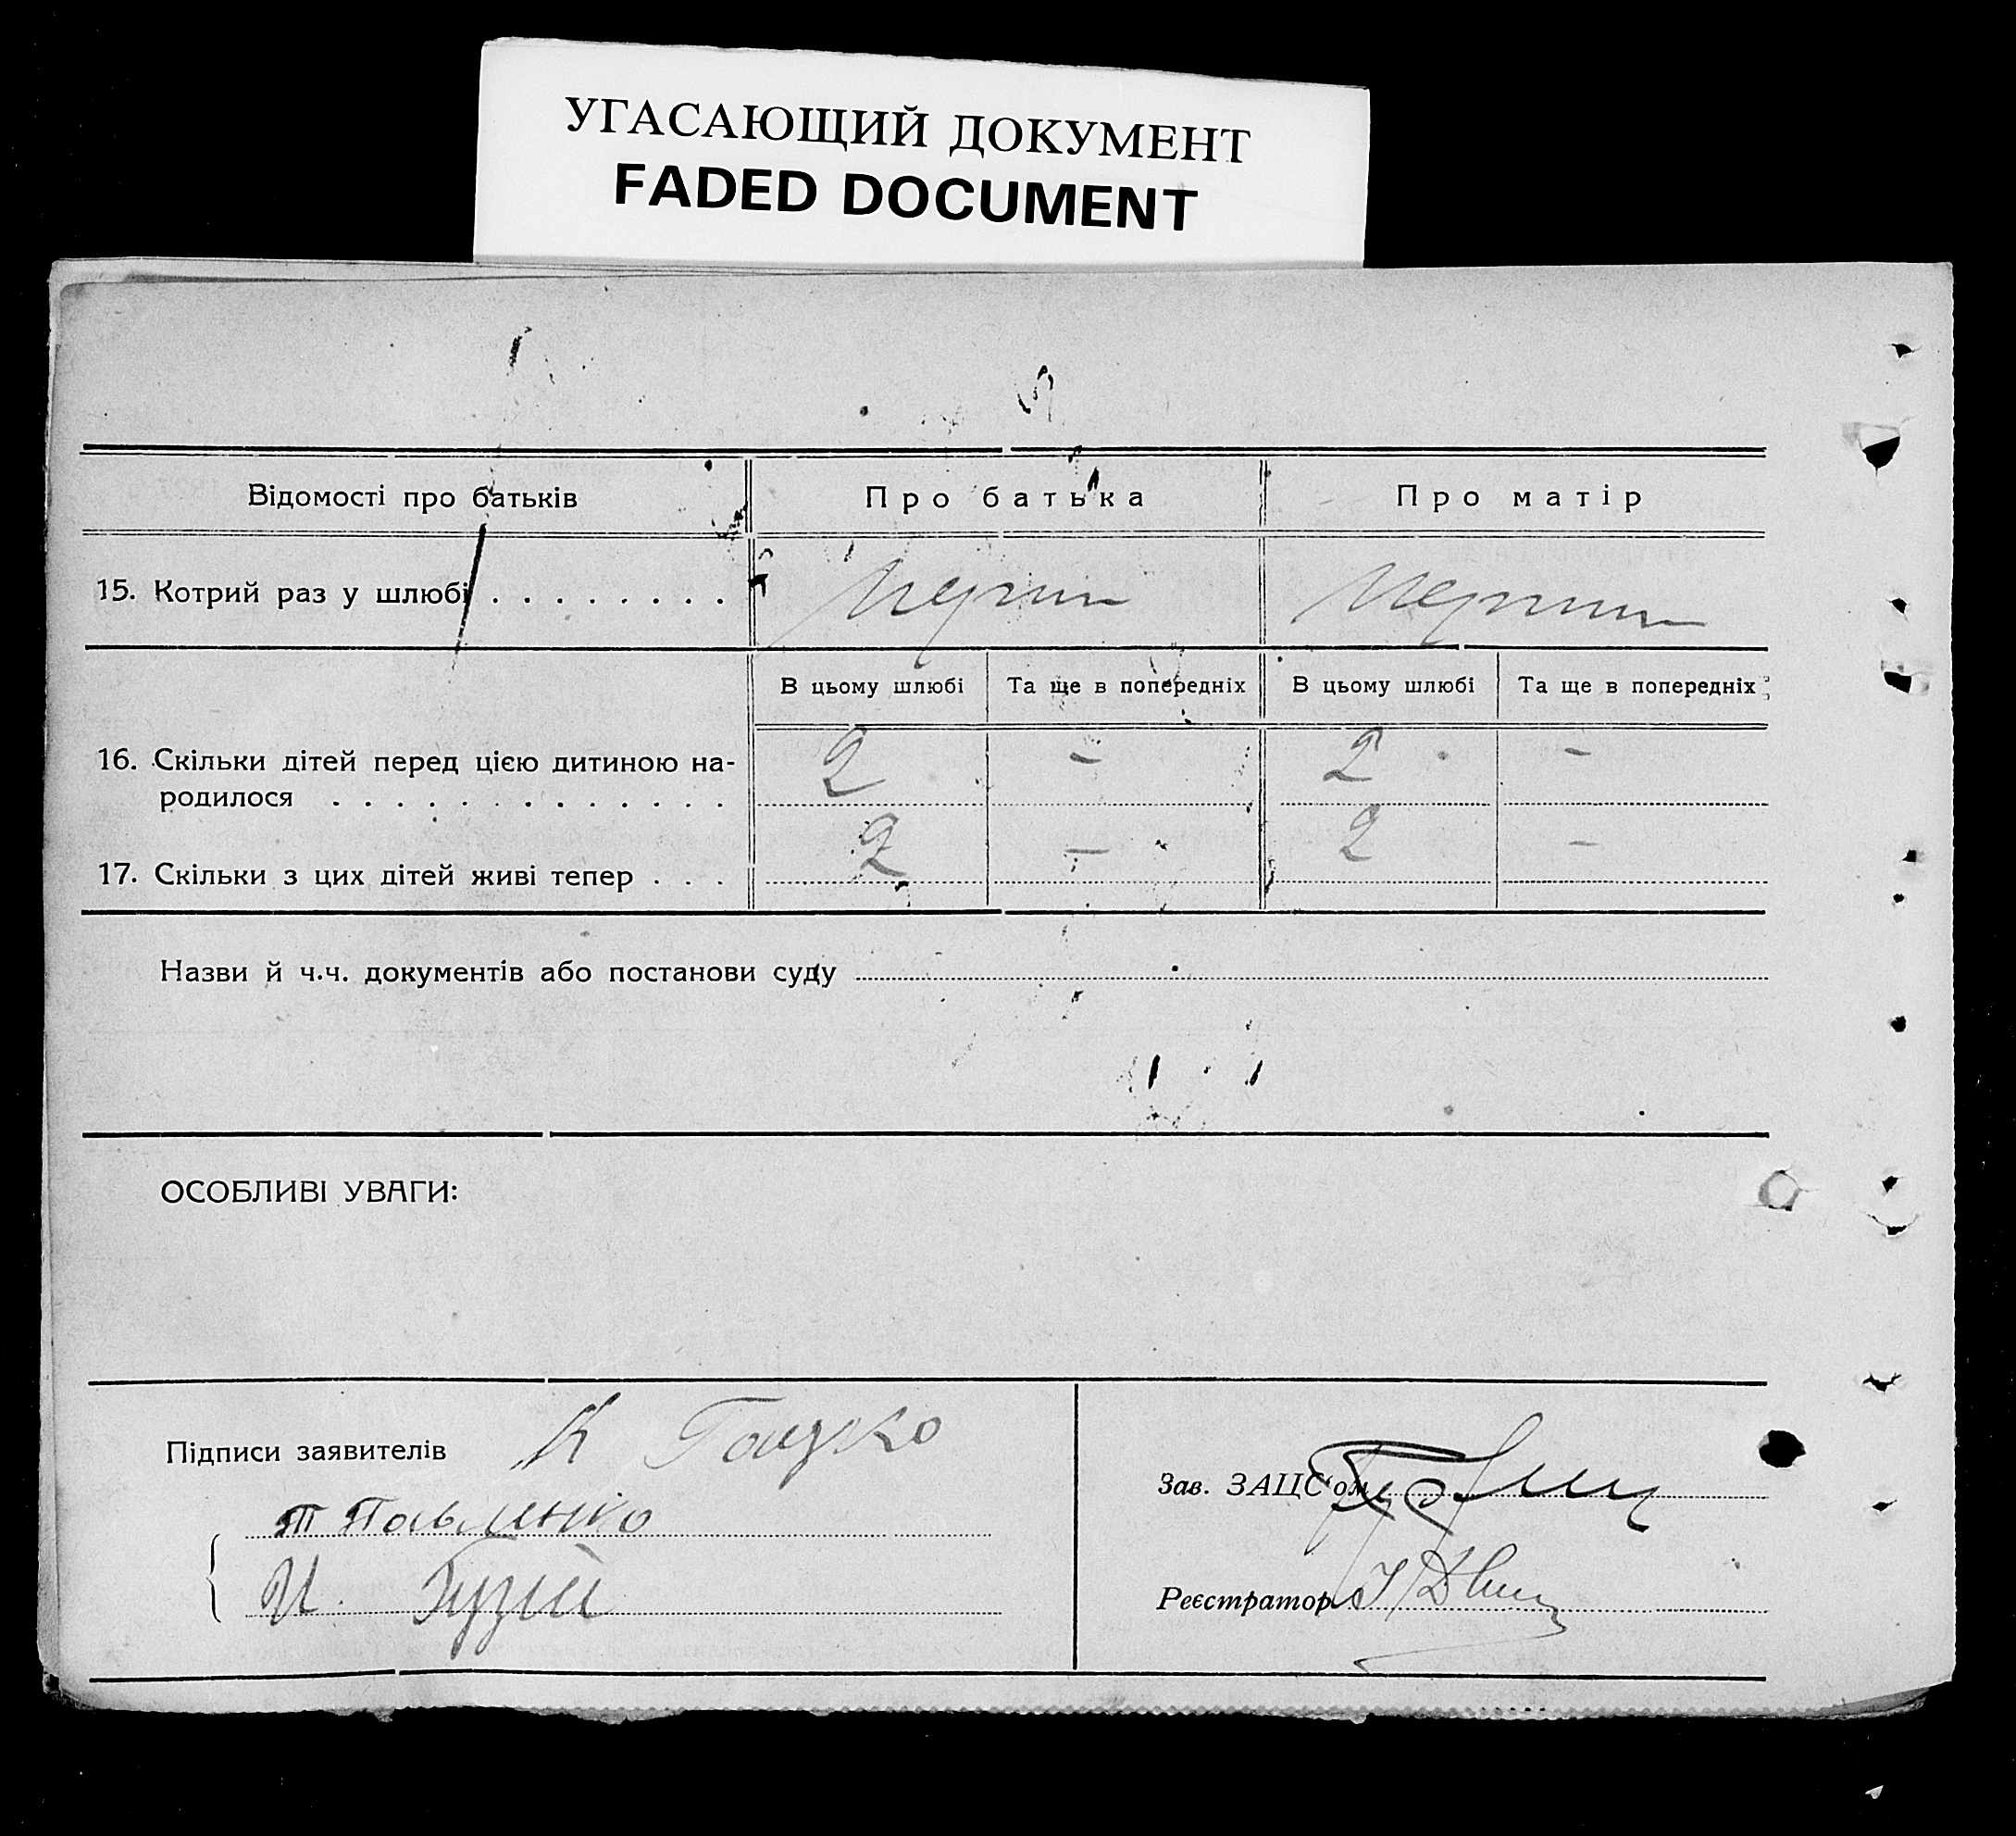 УГАСАЮЩИЙ ДОКУМЕНТ
FADED DOCUMENT
Відомості про батьків Про батька Про матір
15. Котрий раз у шлюбі . . . . . . . .
В цьому шлюбі Та ще в попередніх В цьому шлюбі Та ще в попередніх
16. Скільки дітей перед цією дитиною на-
родилося . . . . . . . . . . . . . 2 – 2 –
17. Скільки з цих дітей живі тепер . . . 2 – 2 –
Назви й ч.ч. документів або постанови суду
ОСОБЛИВІ УВАГИ:
Підписи заявителів К Гацко
Т Павленко
И. Гузій
Зав. ЗАЦС'ом
Реєстратор